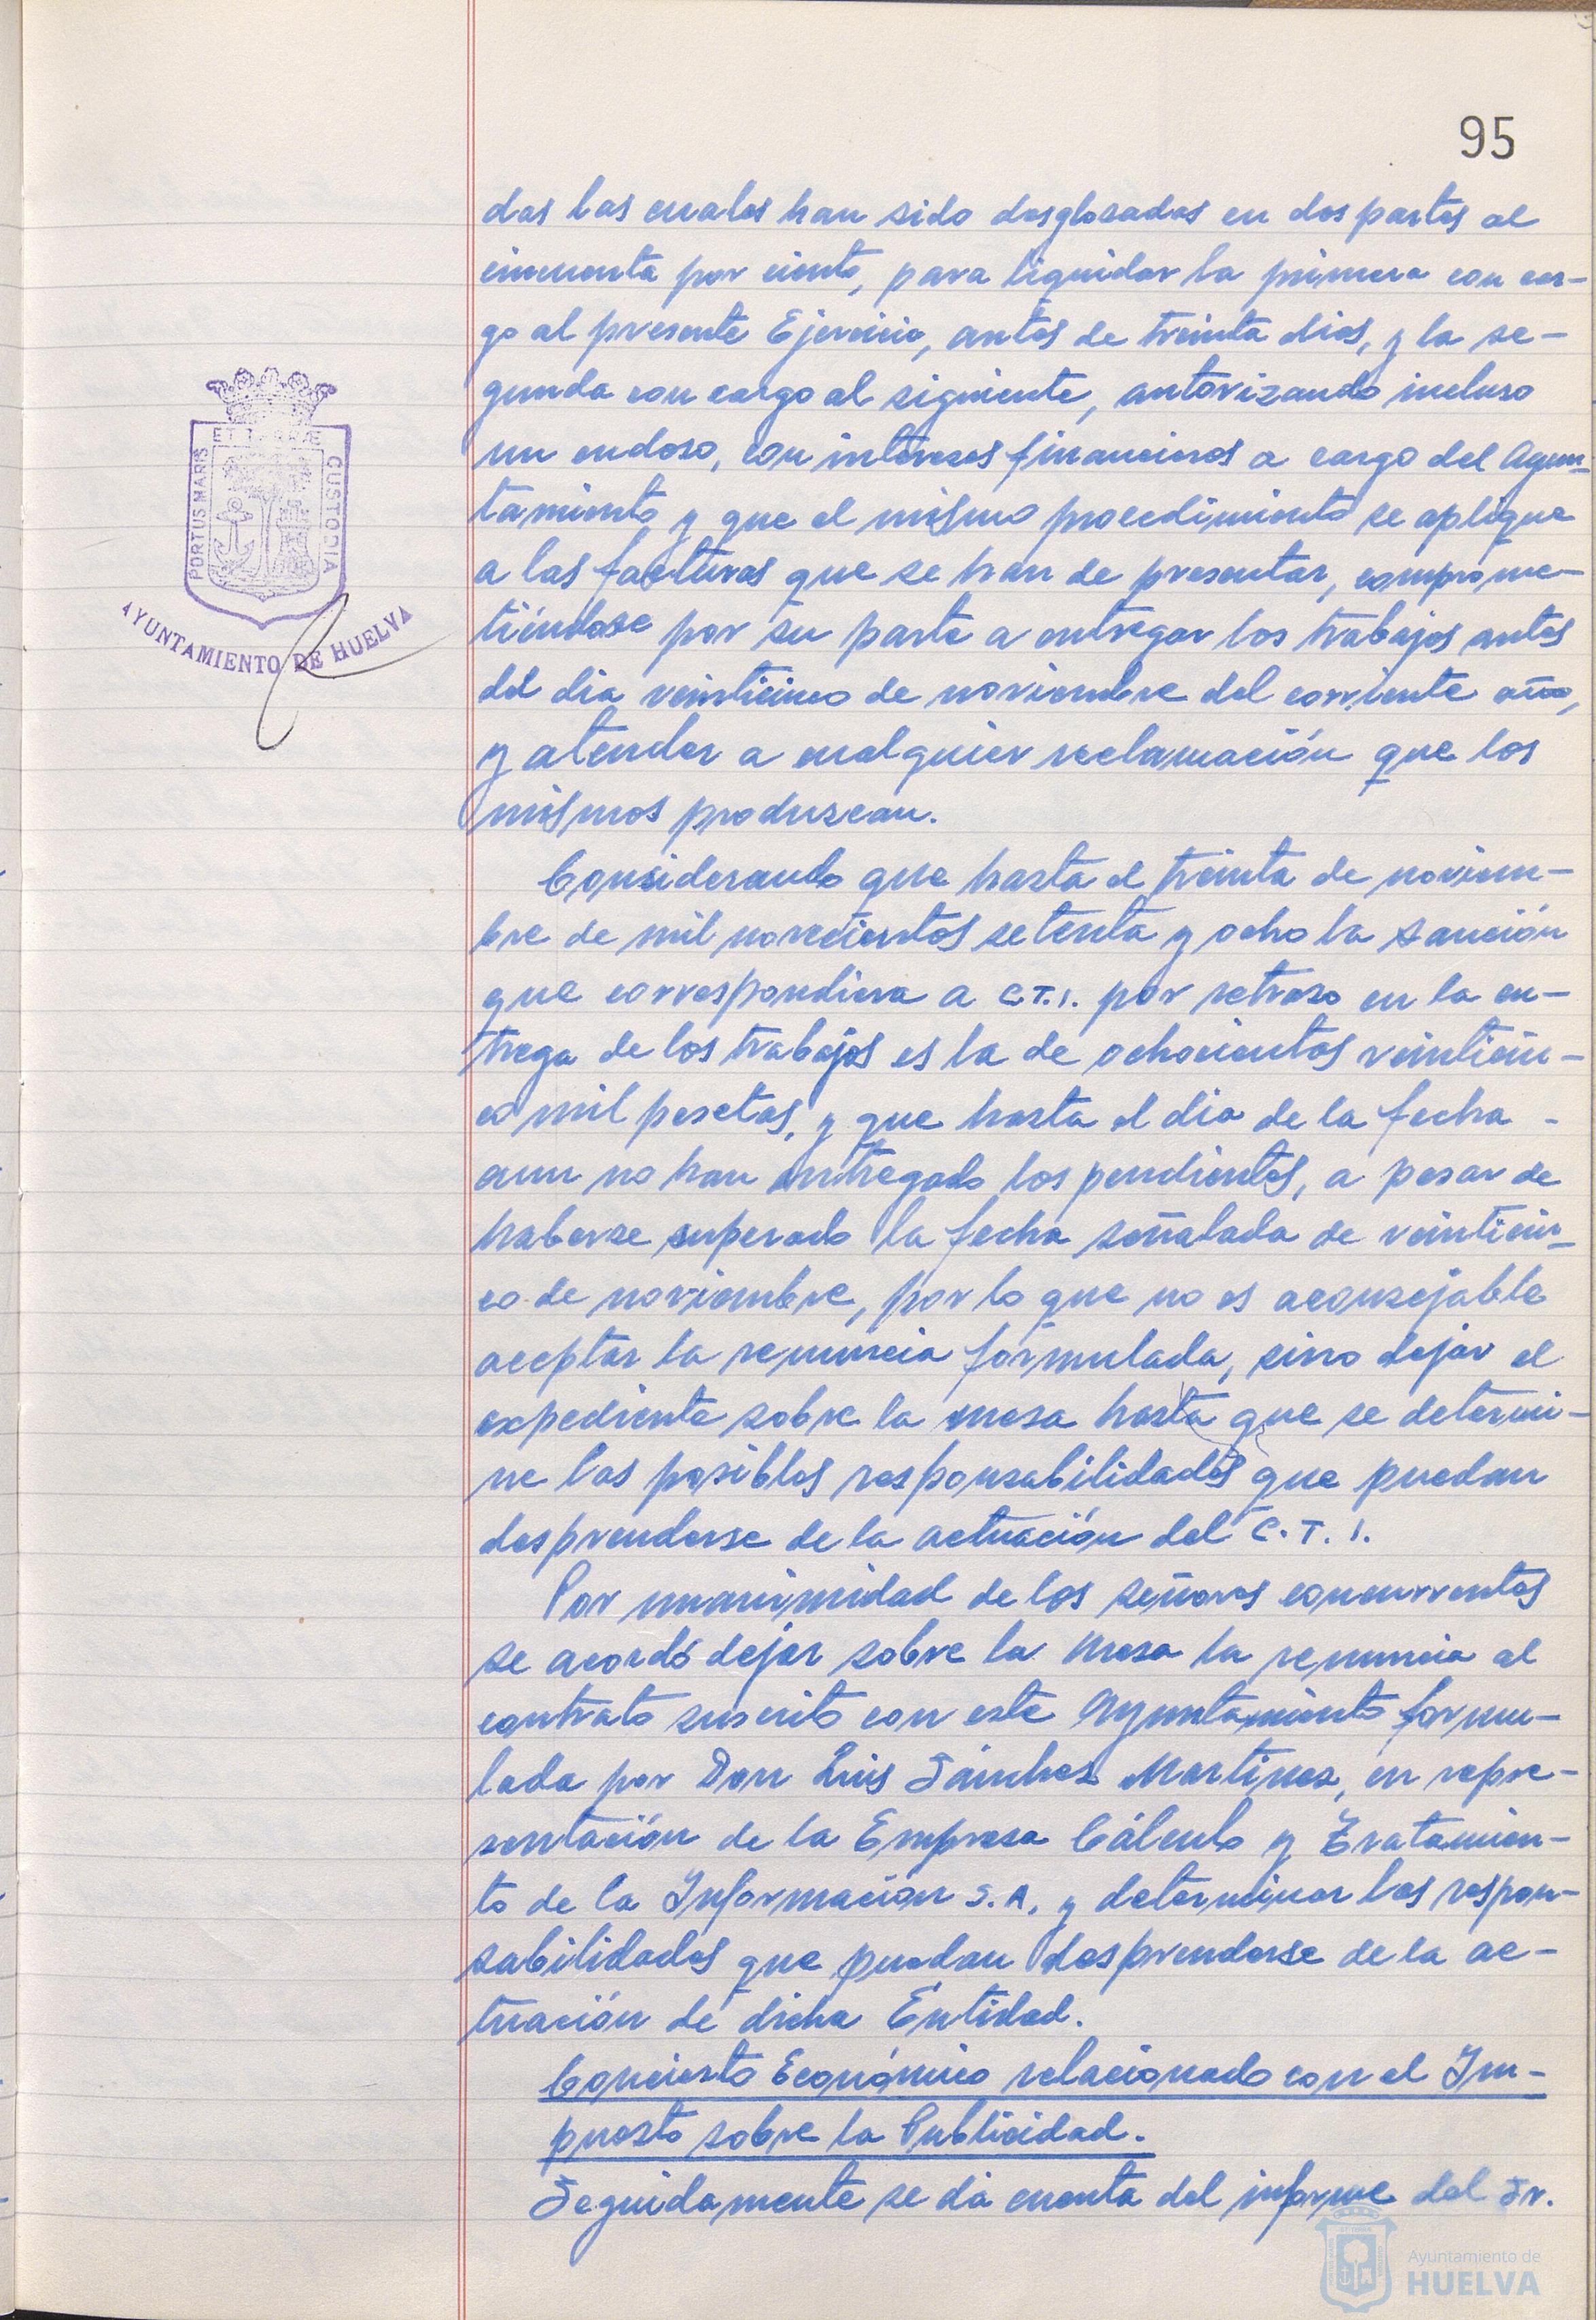 95
das las cuales han sido desglosadas en dos partes al
cincuenta por ciento, para liquidar la primera con car-
go al presente Ejercicio, antes de treinta dias, y la se-
gunda con cargo al siguiente, autorizando incluso
un endoso, con intereses financieros a cargo del Ayun-
tamiento y que el mismo procedimiento se aplique
a las facturas que se han de presentar, comprome-
tiéndose por su parte a entregar los trabajos antes
del dia veinticinco de noviembre del corriente año,
y atender a cualquier reclamación que los
mismos produzcan.
Considerando que hasta el treinta de noviem-
bre de mil novecientos setenta y ocho la sanción
que correspondiera a C.T.I. por retraso en la en-
trega de los trabajos es la de ochocientas veinticin-
co mil pesetas, y que hasta el dia de la fecha -
aun no han entregado los pendientes, a pesar de
haberse superado la fecha señalada de veinticin-
co de noviembre, por lo que no es aconsejable
aceptar la renuncia formulada, sino dejar el
expediente sobre la mesa hasta que se determi-
ne las posibles responsabilidades que puedan
desprenderse de la actuación del C.T.I.
Por unanimidad de los señores concurrentes
se acordó dejar sobre la mesa la renuncia al
contrato suscrito con este Ayuntamiento formu-
lada por Don Luis Sánchez Martinez, en repre-
sentación de la Empresa Cálculo y Tratamien-
to de la Información S.A. y determinar las respon-
sabilidades que puedan desprenderse de la ac-
tuación de dicha Entidad.
Concierto Económico relacionado con el Im-
puesto sobre la Publicidad.
Seguidamente se dá cuenta del informe del Sr.
PORTUS MARIS ET TERRÆ CUSTODIA
AYUNTAMIENTO DE HUELVA
Ayuntamiento de
HUELVA